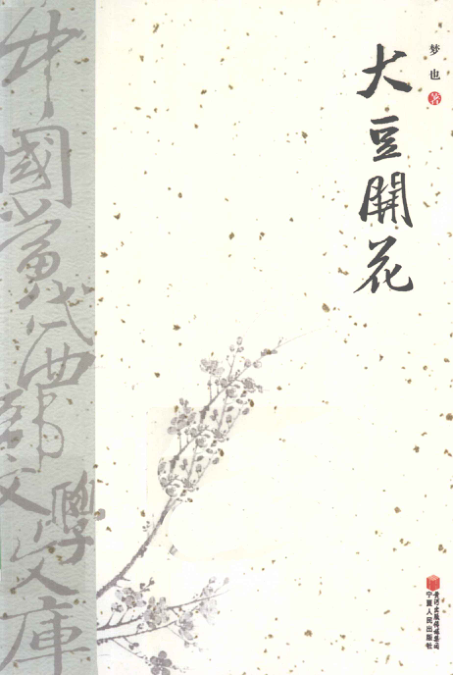 梦也著
大豆開花
中國當代西部文學文庫
黄河出版传媒集团
宁夏人民出版社